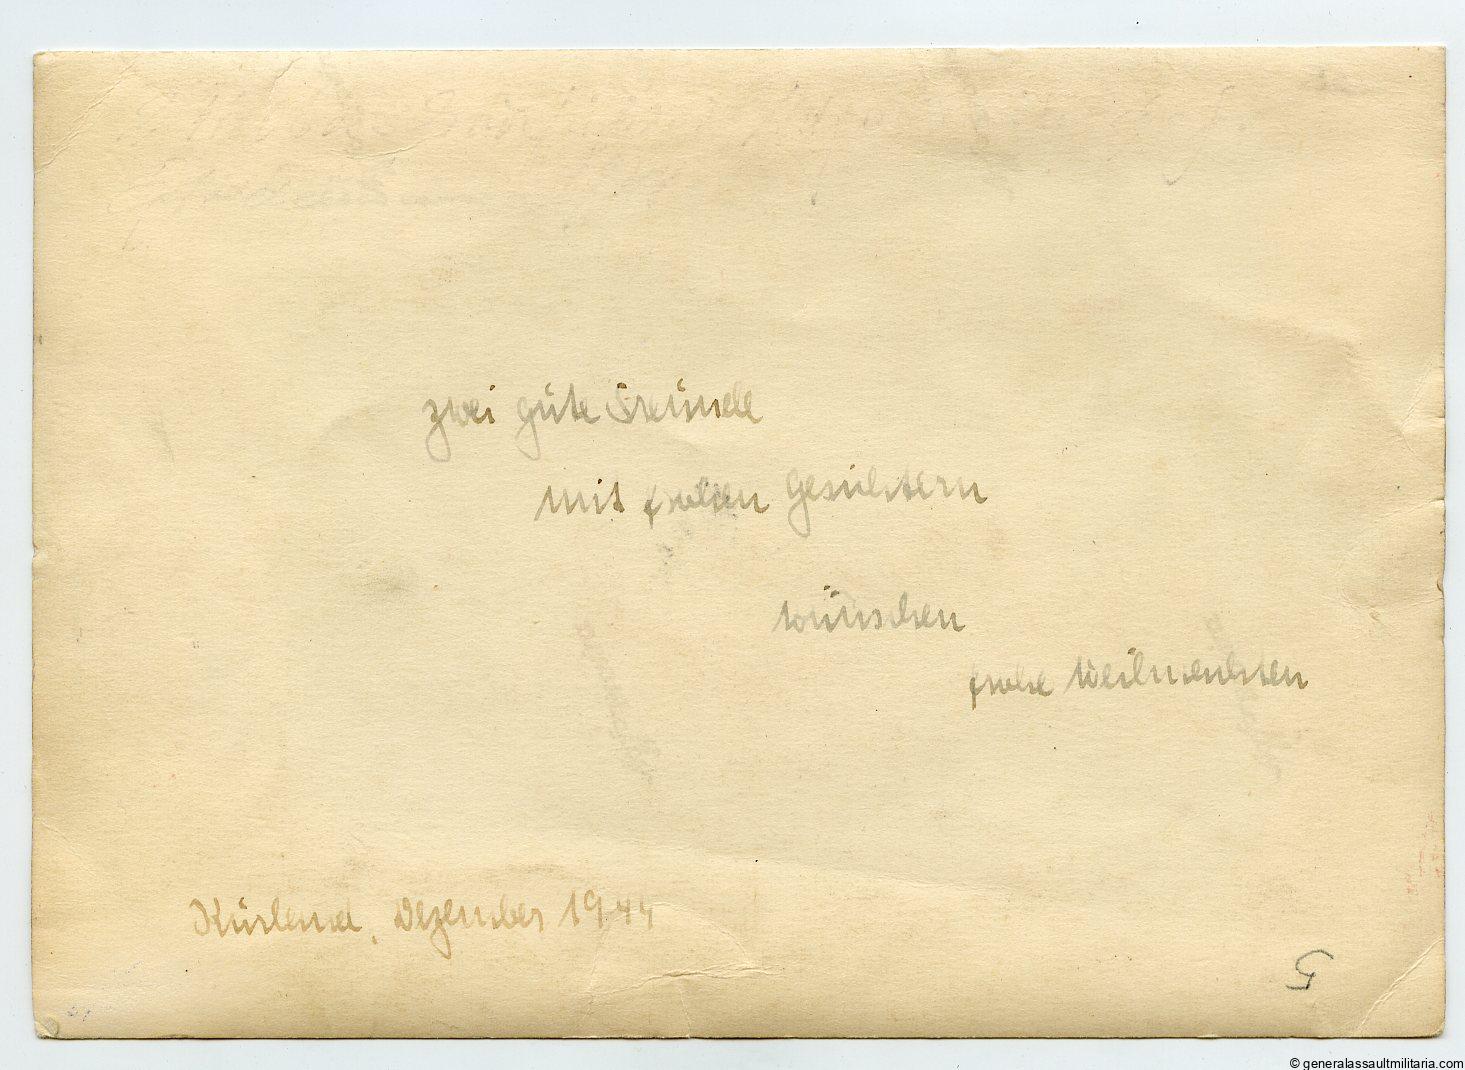 zwei gute Freunde
mit frohen Gesichtern
wünschen
frohe Weihnachten
Kurland, Dezember 1944
5
© generalassaultmilitaria.com